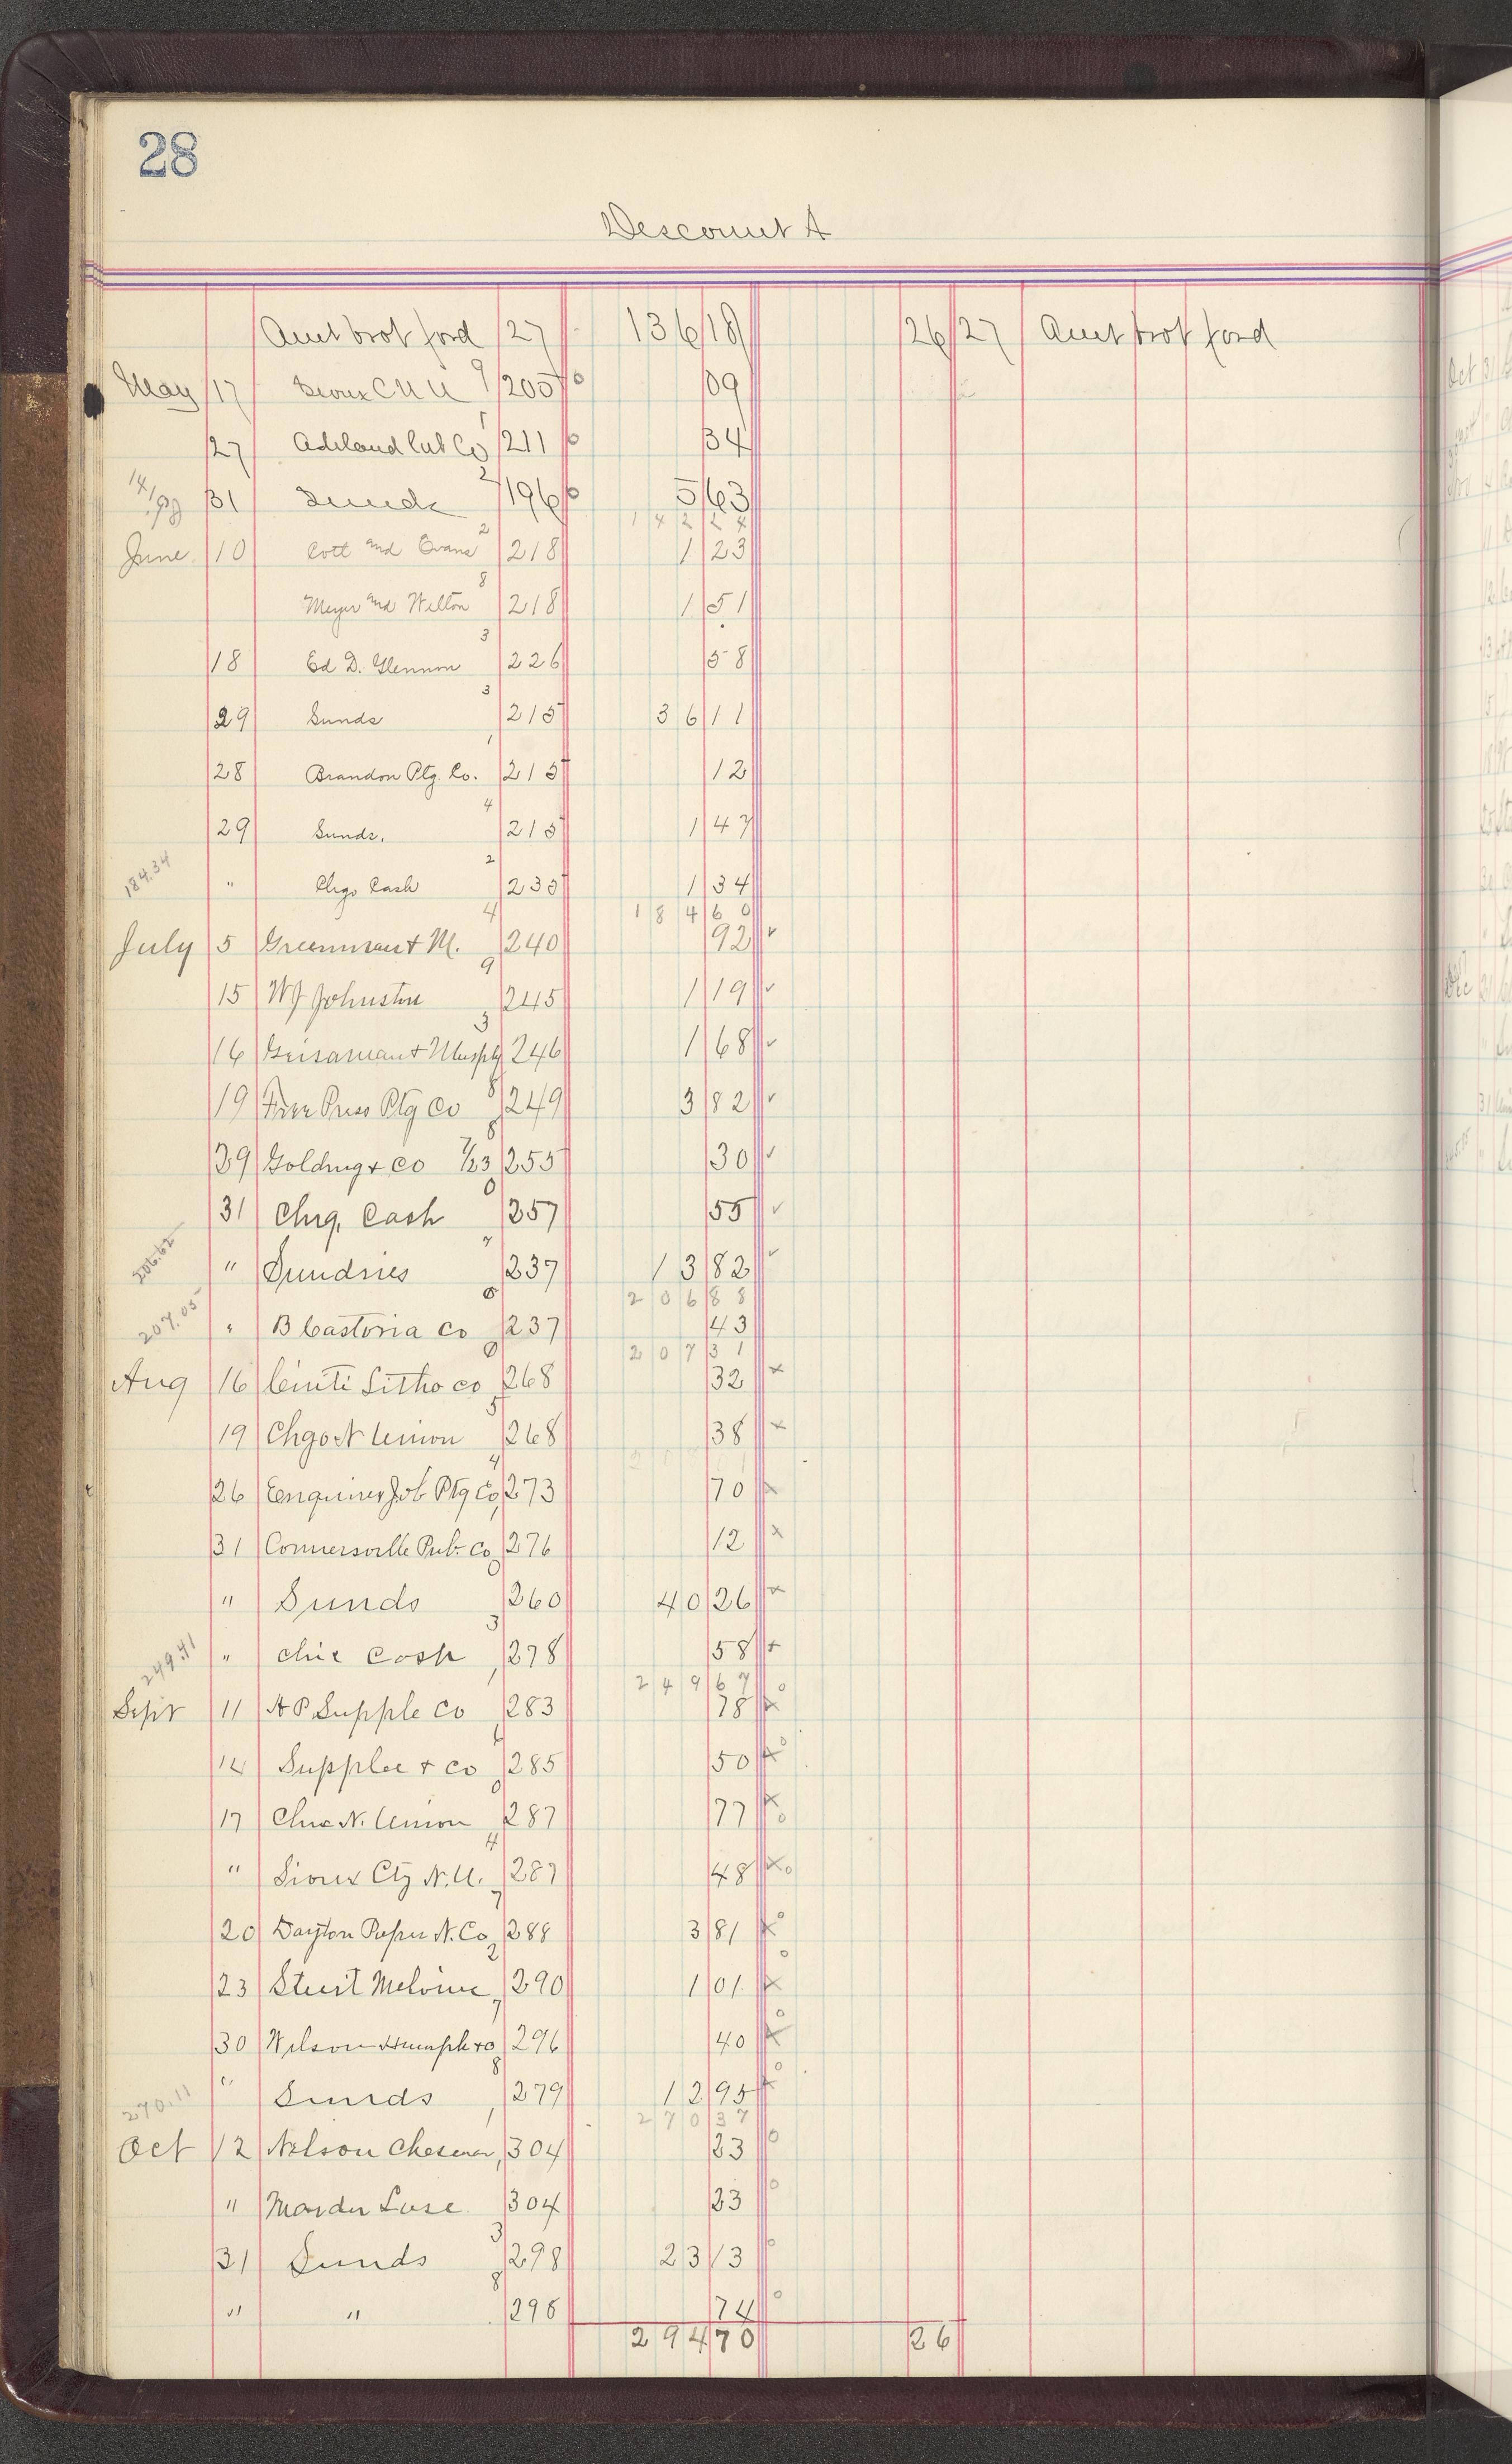 28
Descount A
Amt brot ford 27 136 18 26 27 Amt brot ford
May 17 Sioux C N U 9 205 09
27 Ashland Pub Co 1 211 34
31 Sunds 2 196 5 63
142 24
June 10 Cott and Evans 2 218 1 23
Meyer and Wilton 8 218 1 51
18 Ed D. Glennon 3 226 58
29 Sunds 3 215 36 11
28 Brandon Ptg. Co. 1 215 12
29 Sunds. 4 215 1 47
184.34 " Chgo Cash 2 235 1 34
184 60
July 5 Greenman & M. 4 240 92
15 WJ Johnston 9 245 1 19
16 & 3 246 1 68
19 Free Press Ptg Co 8 249 3 82
29 Golding & Co 7/23 8 255 30
31 Chg. Cash 0 257 55
206.62 " Sundries 7 237 13 82
206 88
207.05 " B Castoria Co 8 237 43
207 31
Aug 16 Cinti Litho Co 0 268 32
19 Chgo N Union 5 268 38
26 Enquirer Job Ptg Co 4 273 70
31 Connersville Pub. Co 276 12
" Sunds 0 260 40 26
249.41 " Chic Cash 3 278 58
249 67
Sept 11 A P Supple Co 1 283 78
14 Supplee & Co 6 285 50
17 Chic N. Union 0 287 77
" Sioux Cty N.U. 4 287 48
20 Dayton Paper N. Co 7 288 3 81
23 2 290 1 01
30 Wilson Humph & Co 7 296 40
" Sunds 8 279 12 95
270.11 270 37
Oct 12 Nelson Chesman 1 304 23
" Marder Luse 304 23
31 Sunds 3 298 23 13
" " 8 298 74
294 70 26